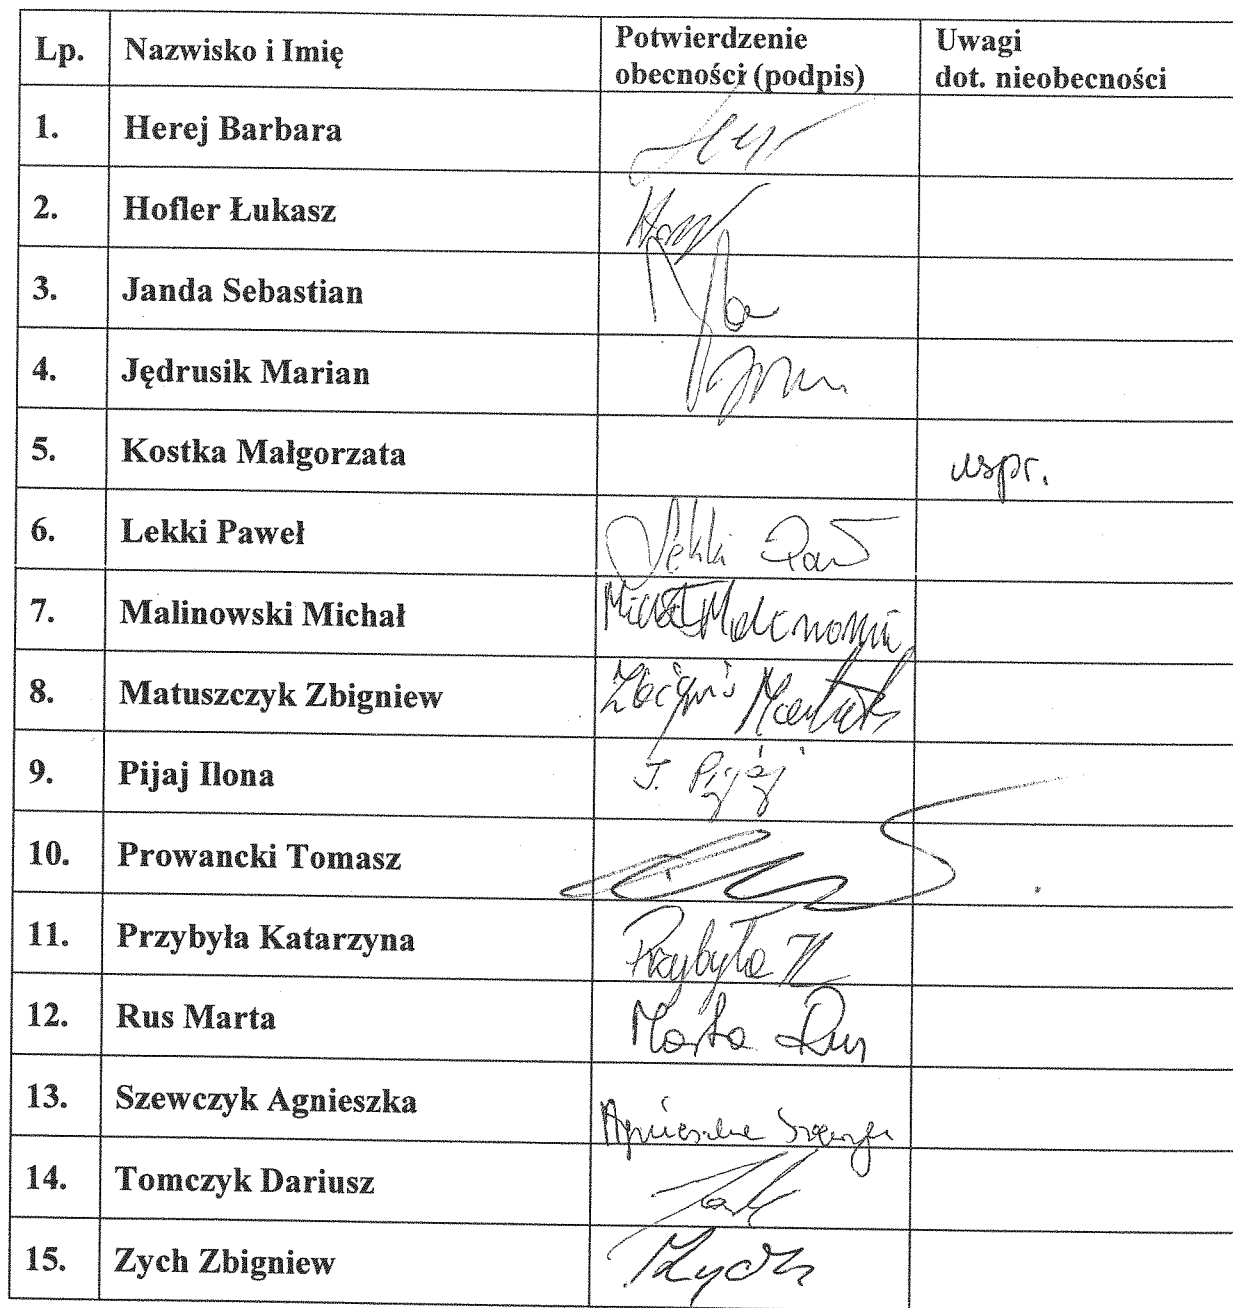 Lp. Nazwisko i Imię Potwierdzenie obecności (podpis) Uwagi dot. nieobecności
1. Herej Barbara
2. Hofler Łukasz
3. Janda Sebastian
4. Jędrusik Marian
5. Kostka Małgorzata uspr.
6. Lekki Paweł Lekki
7. Malinowski Michał Michał
8. Matuszczyk Zbigniew
9. Pijaj Ilona I. Pijaj
10. Prowancki Tomasz
11. Przybyła Katarzyna Przybyła K
12. Rus Marta Marta Rus
13. Szewczyk Agnieszka Agnieszka
14. Tomczyk Dariusz
15. Zych Zbigniew Zych